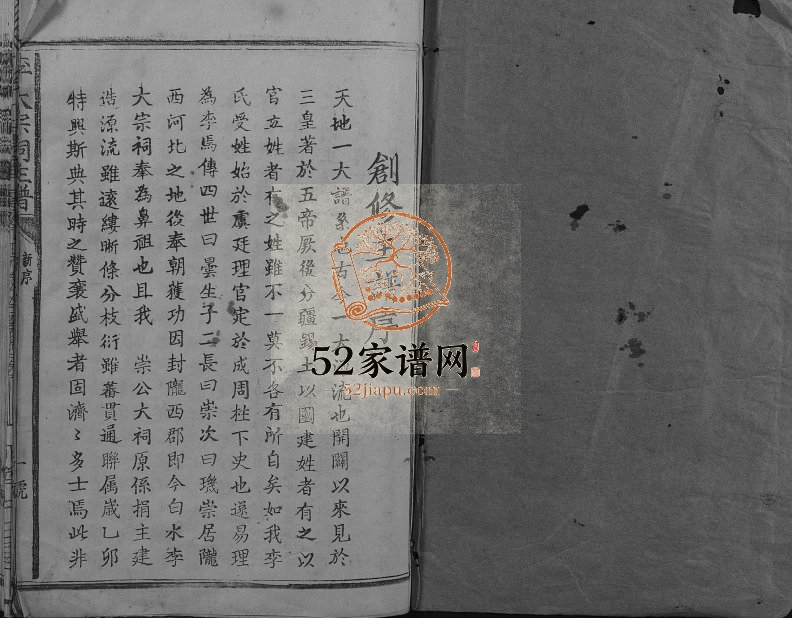 創修主譜序
天地一大譜系也古今一大 流也開闢以來見於
三皇著於五帝厥後分疆錫土以國建姓者有之以
官立姓者有之姓雖不一莫不各有所自矣如我李
氏受姓始於虞廷理官定於成周柱下史也遂易理
為李焉傳四世曰曇生子二長曰崇次曰璣崇居隴
西河北之地後奉朝獲功因封隴西郡即今白水李
大宗祠奉為鼻祖也且我 崇公大祠原係捐主建
造源流雖遠縷晰條分枝衍雖蕃貫通聯属歲乙卯
特興斯典其時之贊襄盛舉者固濟〻多士焉此非
大宗祠主譜
新序
一號
52家谱网
52jiapu.com